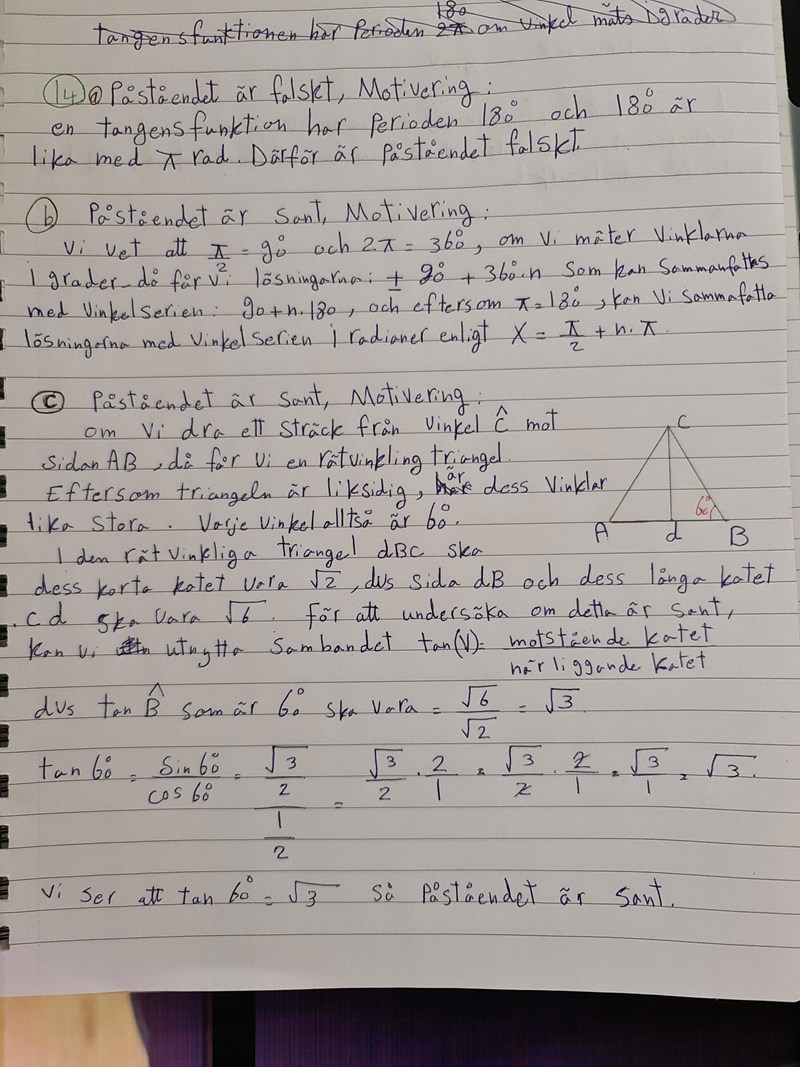 tangensfunktionen har Perioden 180 2π om vinkel mäts i grader
14 a Påståendet är falskt, Motivering:
en tangensfunktion har Perioden 180° och 180° är
lika med π rad. Därför är påståendet falskt.
b Påståendet är sant, Motivering:
Vi vet att π/2 = 90° och 2π = 360°, om vi mäter vinklarna
i grader då får vi lösningarna: ± 90° + 360°·n som kan sammanfattas
med vinkelserien: 90+n·180, och eftersom π=180°, kan vi sammafatta
lösningarna med vinkelserien i radianer enligt X = π/2 + n·π
c Påståendet är sant, Motivering:
om vi dra ett sträck från vinkel Ĉ mot
sidan AB, då får vi en rätvinkling triangel.
Eftersom triangeln är liksidig, är dess vinklar
lika stora. Varje vinkel alltså är 60°.
I den rätvinkliga triangel dBC ska
dess korta katet vara √2, dvs sida dB och dess långa katet
cd ska vara √6. För att undersöka om detta är sant,
kan vi utnytta sambandet tan(V)= motstående katet / närliggande katet
dvs tan B̂ som är 60° ska vara = √6/√2 = √3.
tan 60° = sin 60°/cos 60° = (√3/2)/(1/2) = √3/2 · 2/1 = √3/2 · 2/1 = √3/1 = √3.
Vi ser att tan 60° = √3 så Påståendet är sant.
C
60°
A d B